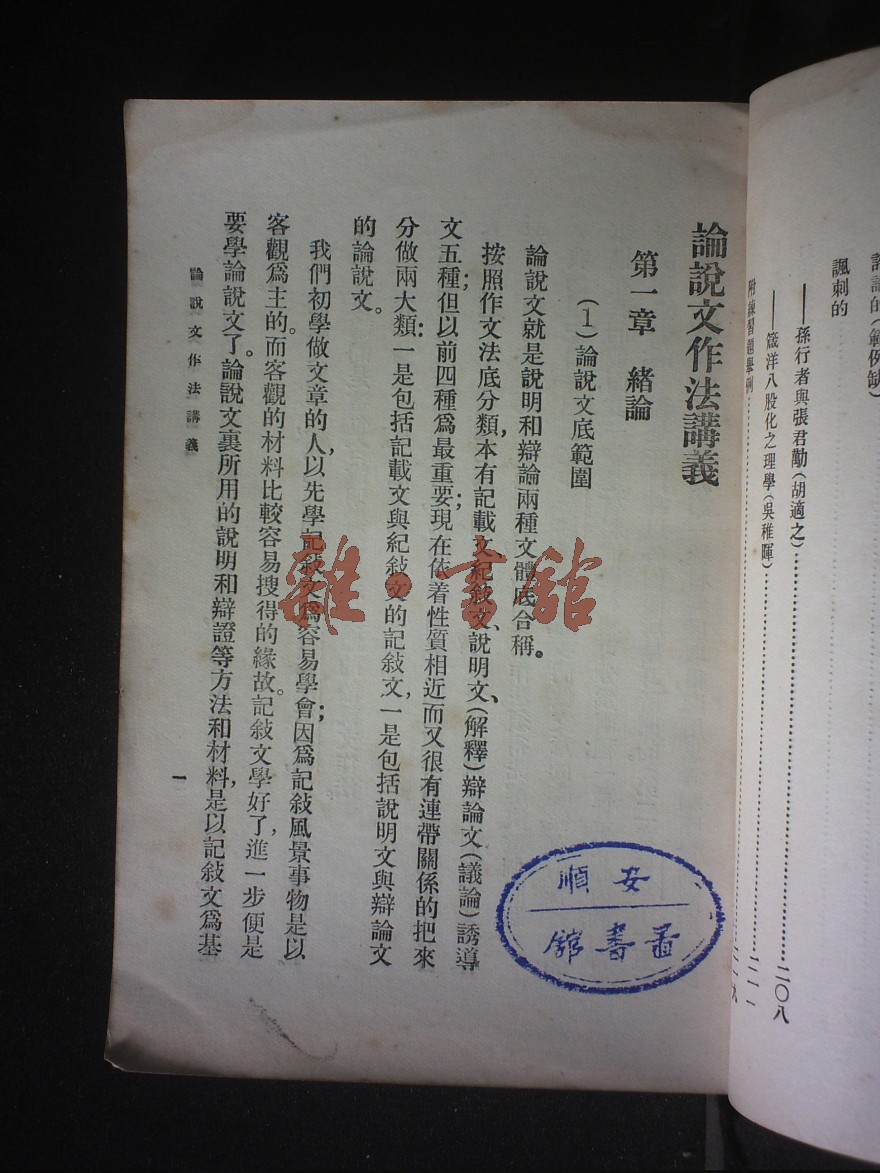 諷刺的
——孫行者與張君勱（胡適之）……二〇八
——箴洋八股化之理學（吳稚暉）……二一一
附練習題舉例
論說文作法講義
第一章　緒論
（1）論說文底範圍
論說文就是說明和辯論兩種文體底合稱。
按照作文法底分類，本有記載文、紀敍文、說明文、（解釋）辯論文（議論）誘導
文五種；但以前四種爲最重要；現在依着性質相近而又很有連帶關係的把來
分做兩大類：一是包括記載文與紀敍文的記敍文，一是包括說明文與辯論文
的論說文。
我們初學做文章的人，以先學記敍文爲容易學會；因爲記敍風景事物是以
客觀爲主的。而客觀的材料比較容易搜得的緣故。記敍文學好了，進一步便是
要學論說文了。論說文裏所用的說明和辯證等方法和材料，是以記敍文爲基
論說文作法講義
一
安順
圖書館
雜·書館